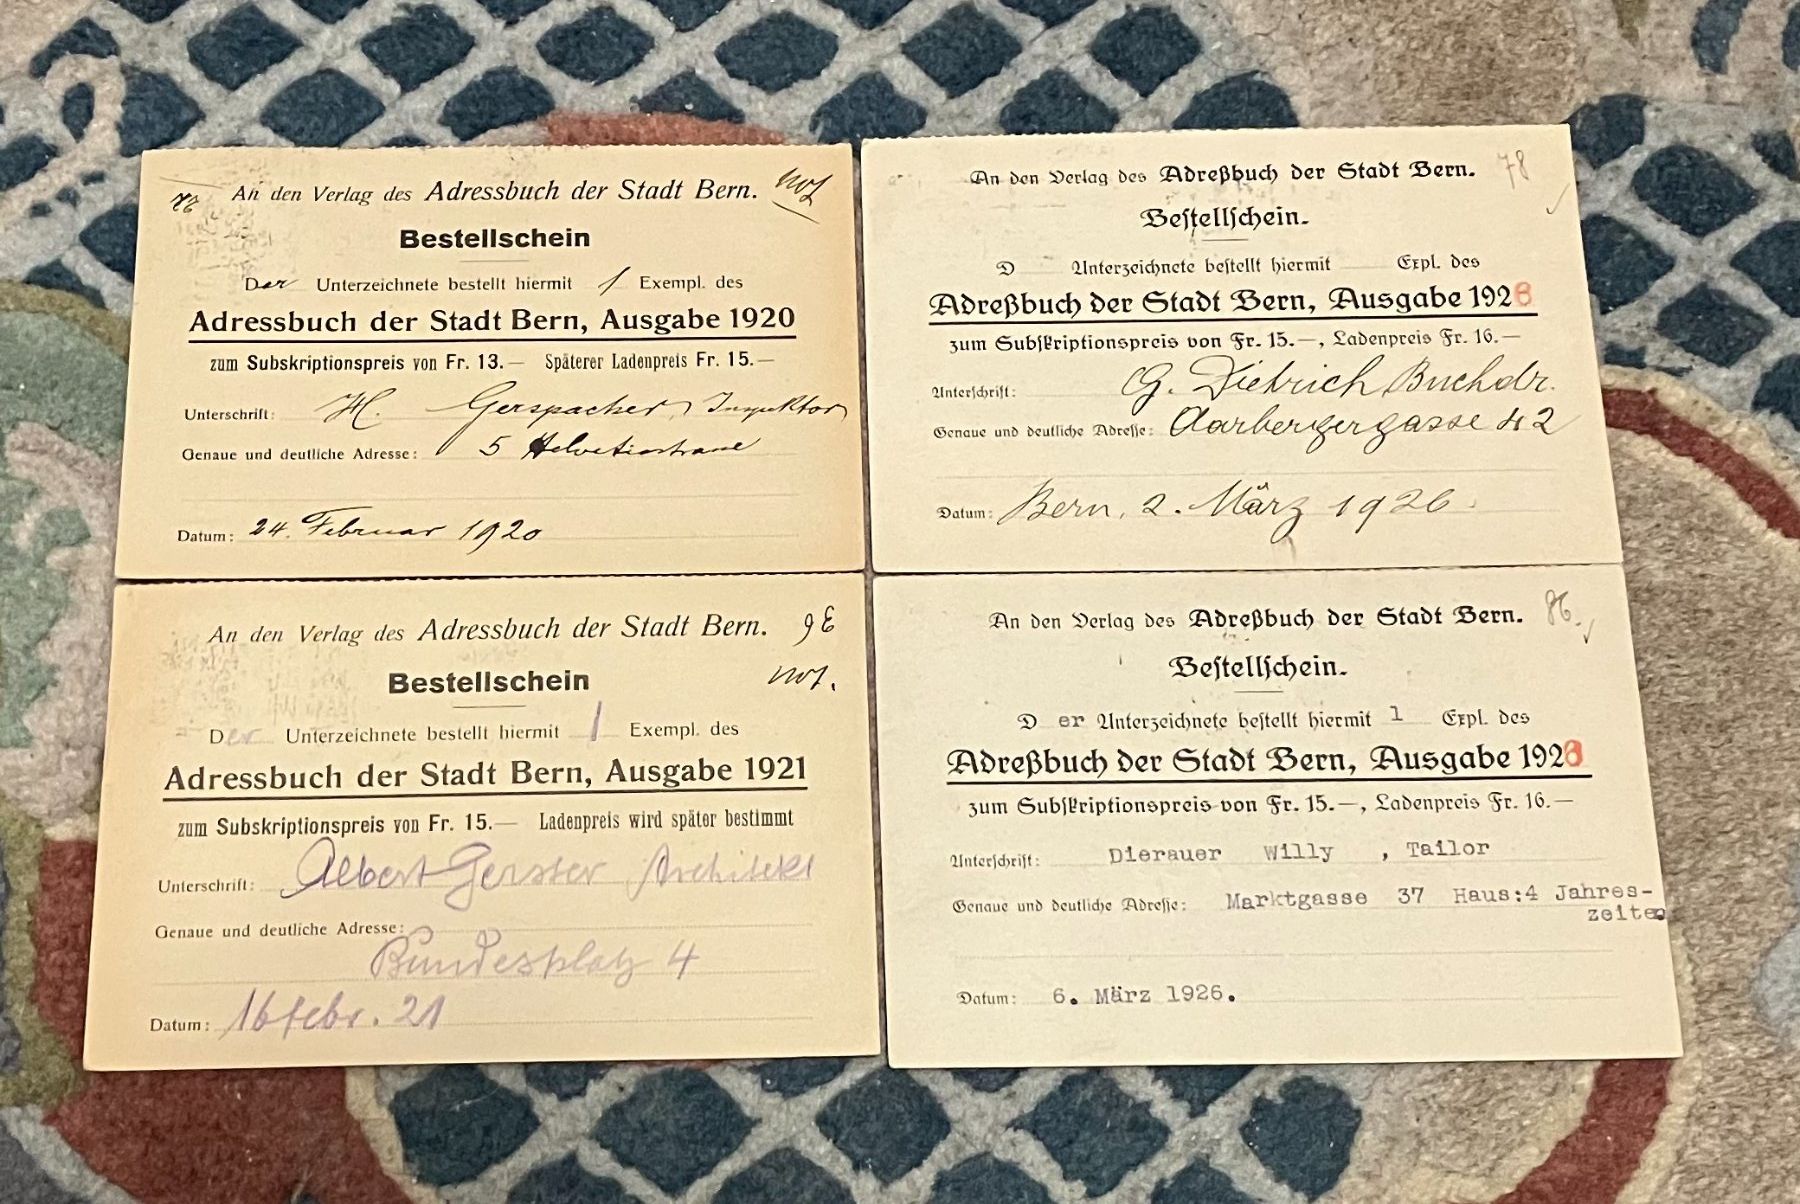 An den Verlag des Adressbuch der Stadt Bern. not
Bestellschein
Der Unterzeichnete bestellt hiermit 1 Exempl. des
Adressbuch der Stadt Bern, Ausgabe 1920
zum Subskriptionspreis von Fr. 13.— Späterer Ladenpreis Fr. 15.—
Unterschrift: H. Gerspacher, Inspektor
Genaue und deutliche Adresse: 5 Helvetiastrasse
Datum: 24. Februar 1920
An den Verlag des Adreßbuch der Stadt Bern. 78
Bestellschein.
D Unterzeichnete bestellt hiermit Expl. des
Adreßbuch der Stadt Bern, Ausgabe 1926
zum Subskriptionspreis von Fr. 15.—, Ladenpreis Fr. 16.—
Unterschrift: G. Dietrich Buchdr.
Genaue und deutliche Adresse: Aarbergergasse 42
Datum: Bern, 2. März 1926.
An den Verlag des Adressbuch der Stadt Bern.
not.
Bestellschein
Der Unterzeichnete bestellt hiermit 1 Exempl. des
Adressbuch der Stadt Bern, Ausgabe 1921
zum Subskriptionspreis von Fr. 15.— Ladenpreis wird später bestimmt
Unterschrift: Albert Gerster Architekt
Genaue und deutliche Adresse:
Bundesplatz 4
Datum: 16 febr. 21
An den Verlag des Adreßbuch der Stadt Bern. 86.
Bestellschein.
D er Unterzeichnete bestellt hiermit 1 Expl. des
Adreßbuch der Stadt Bern, Ausgabe 1926
zum Subskriptionspreis von Fr. 15.—, Ladenpreis Fr. 16.—
Unterschrift: Dierauer Willy , Tailor
Genaue und deutliche Adresse: Marktgasse 37 Haus:4 Jahres-
zeiten
Datum: 6. März 1926.